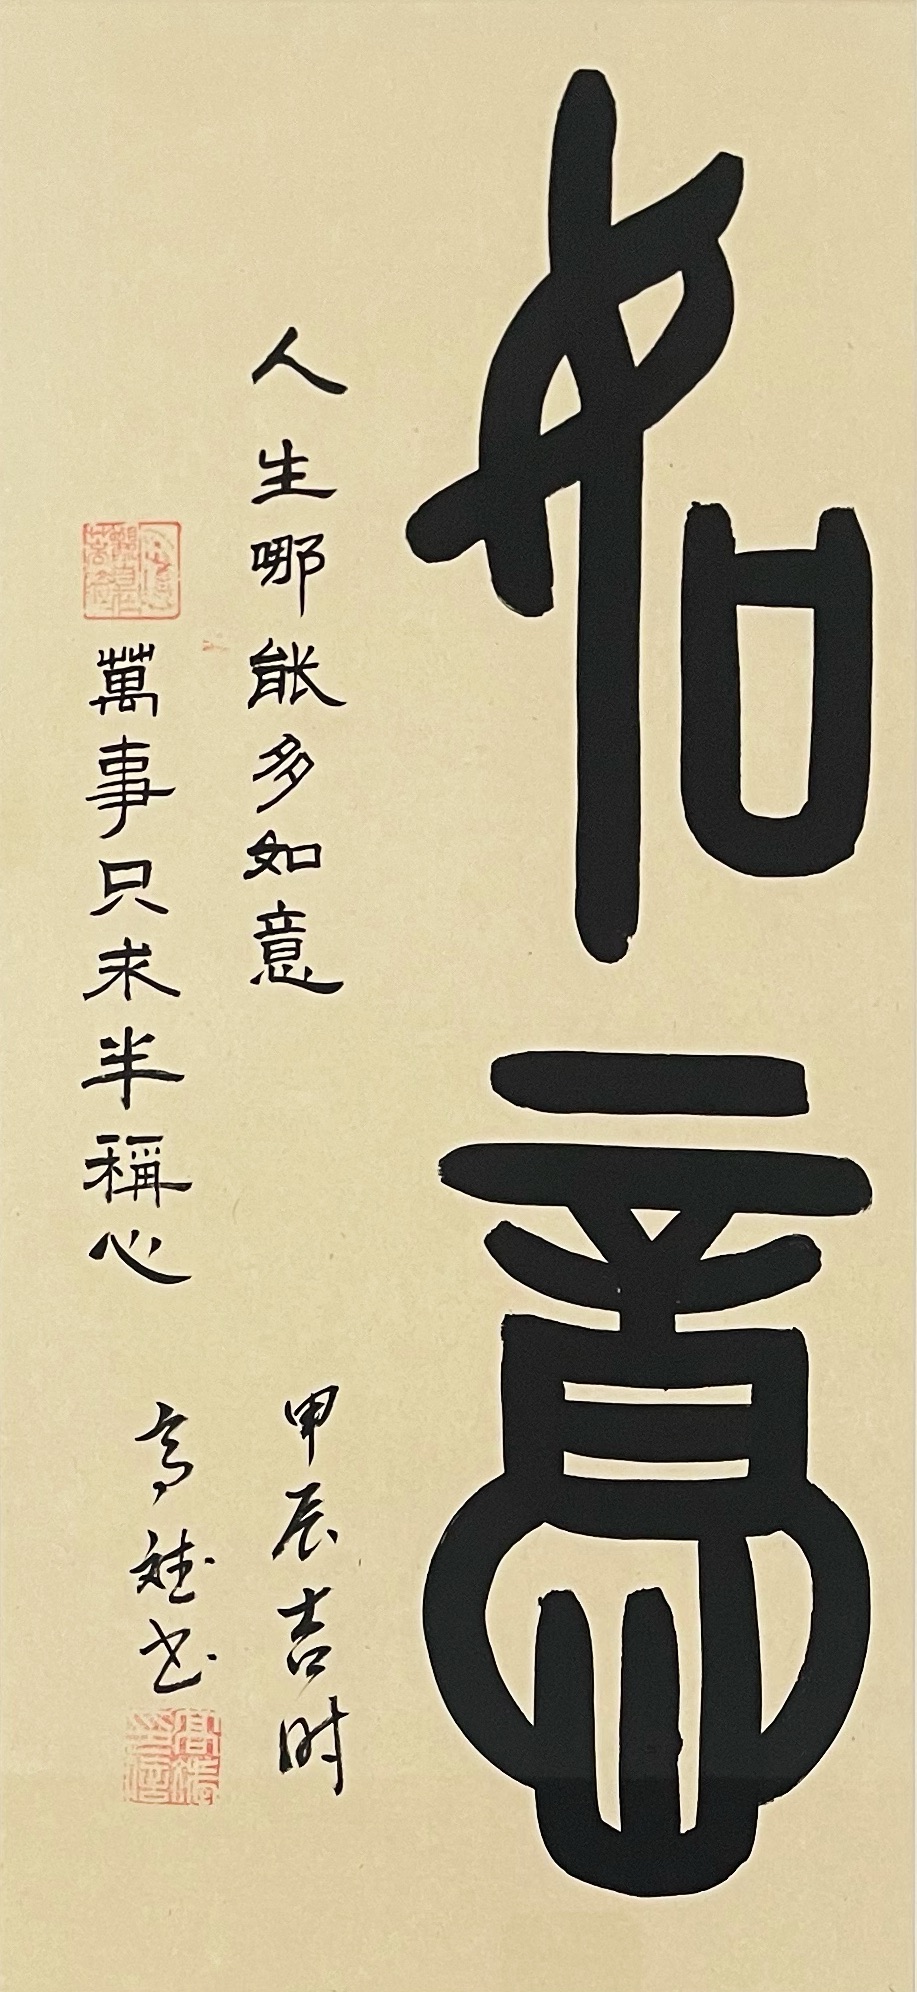 如意
人生哪能多如意
萬事只求半稱心
甲辰吉时
高雄书